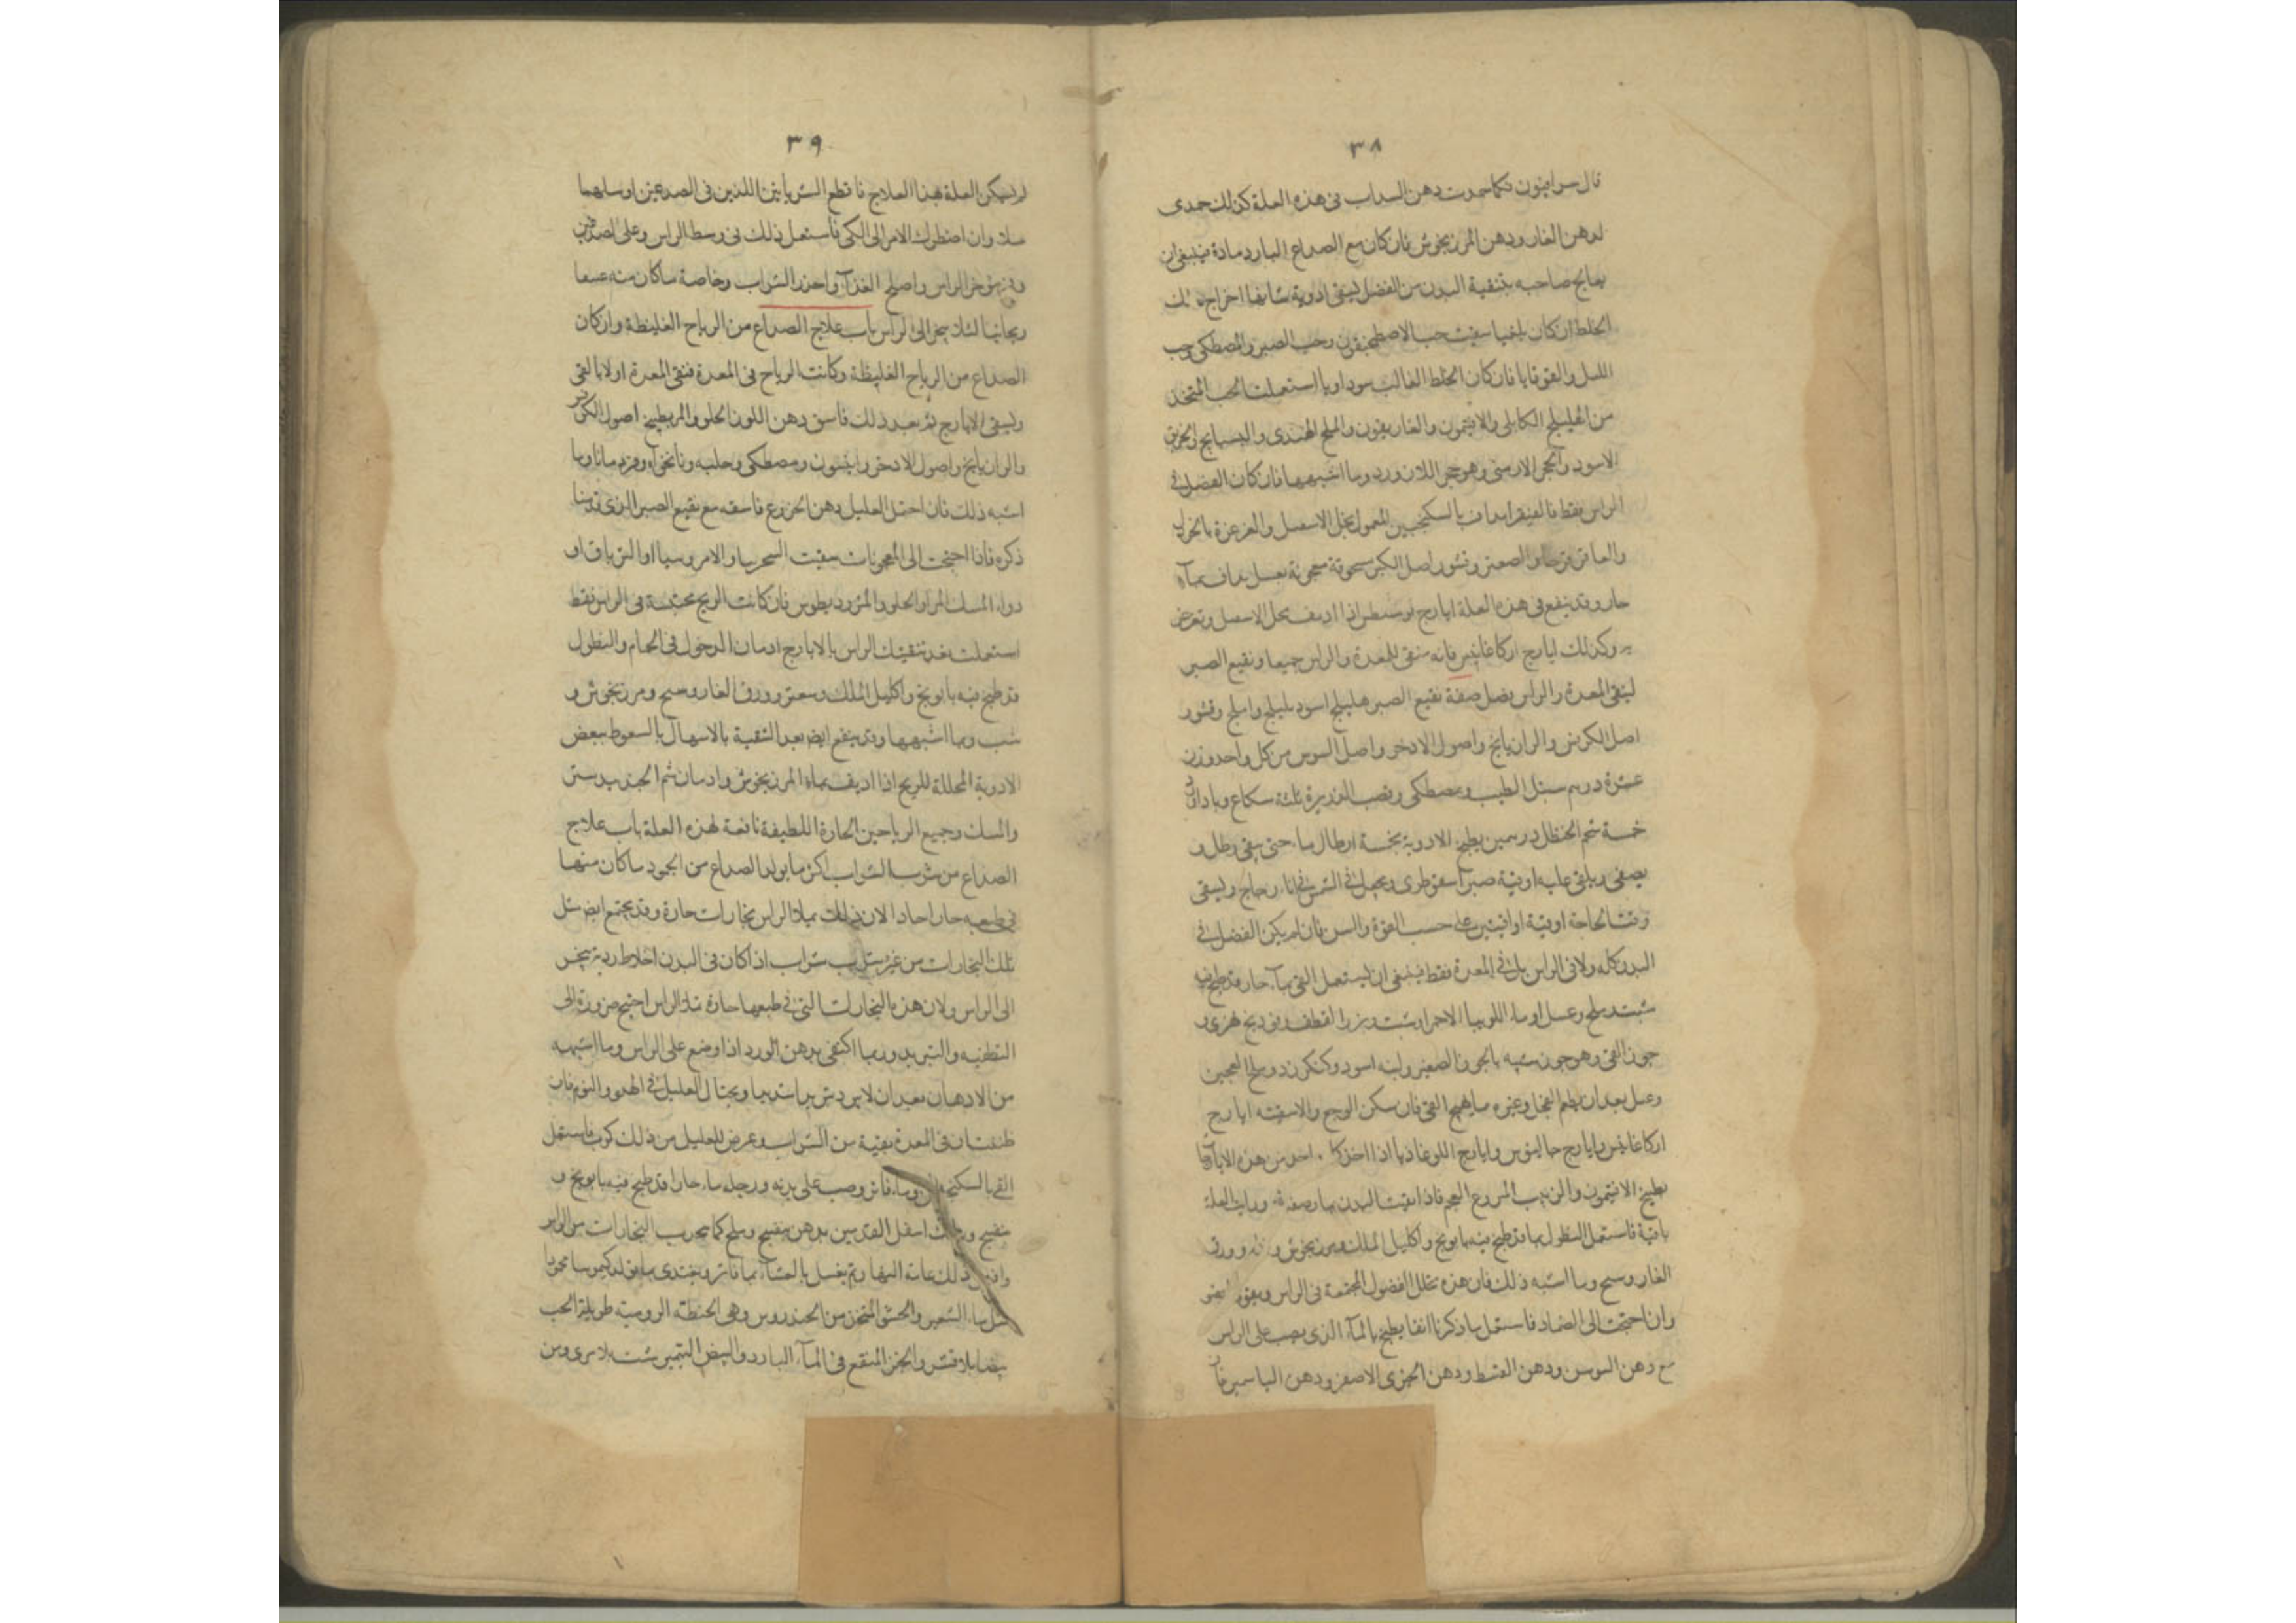 ٣٨
قال سرابيون فكما حمدت دهن السداب فى هذه العلة كذلك حمدى
لدهن الغار ودهن المرزنجوش فان كان مع الصداع البارد مادة فينبغى ان
يعالج صاحبه بتنقية البدن من الفضل ليسقى ادوية شانها اخراج ذلك
الخلط ان كان بلغميا سقيت حب الاصطمخيقون وحب الصبر والمصطكى وحب
والقوقايا فان كان الخلط الغالب سوداويا استعملت الحب المتخذ
من الهليلج الكابلى والافتيمون والغاريقون والملح الهندى والبسبايج والخربق
الاسود والحجر الارمنى وهو حجر اللازورد وما اشبهها فان كان الفضل فى
الراس فقط بالسكنجبين المعمول بخل الاسقيل والغرغرة بالخردل
والعاقرقرحا والصعتر وقشور اصل الكبر مسحوقة معجونة بعسل يداف بمآء
حار وقد ينفع فى هذه العلة ايارج اذا اديف بخل الاسقيل وتغرغر
به وكذلك ايارج اركاغانيس فانه منقى للمعدة والراس جميعا ونقيع الصبر
لينقى المعدة والراس بفضل صفة نقيع الصبر هليلج اسود بليلج واملج وقشور
اصل الكرفس والرازيانج واصول الاذخر واصل السوس من كل واحد وزن
عشرة درهم سنبل الطيب ومصطكى وقصب الذريرة ثلثة
خمسة شحم الحنظل درهمين يطبخ الادوية بخمسة ارطال ماء حتى يبقى رطل و
يصفى ويلقى عليه اوقية صبر اسقوطرى ويجعل فى الشمس فى اناء زجاج ويسقى
وقت الحاجة اوقية او اوقيتين على حسب القوة والسن فان لم يكن الفضل فى
البدن كله ولا فى الراس بل فى المعدة فقط فينبغى ان يستعمل القى بمآء حار قد طبخ فيه
شبت وملح وعسل او ماء اللوبيا الاحمر او شبت وبزر القطف
جوز القى وهو جوز شبيه بالجوز الصغير ولبه اسود وكنكرزد وملح العجين
وعسل بعد ان يطعم الفجل وغيره ما يهيج القى فان سكن الوجع والا سقيته ايارج
اركاغانيس وايارج جالينوس وايارج اللوغاذيا اذا اخذ من هذه الايارجات
بطبيخ الافتيمون والزبيب المنزوع العجم فاذا انقيت البدن بما وصفته ورايت العلة
باقية فاستعمل النطول بما قد طبخ فيه بابونج واكليل الملك ومرزنجوش وورق
الغار وسيح وما اشبه ذلك فان هذه تحلل الفضول المجتمعة فى الراس
وان احتجت الى الضماد فاستعمل ما ذكرنا انفا يطبخ بالمآء الذى يصب على الراس
مع دهن السوسن ودهن القسط ودهن الخيرى الاصفر ودهن الياسمين فان
٣٩
لم تسكن العلة بهذا العلاج فاقطع الشريانين اللذين فى الصدغين او سلهما
سلا وان اضطرك الامر الى الكى فاستعمل ذلك فى وسط الراس وعلى الصدغين
وفى مؤخر الراس واصلح الغذآء واحذر الشراب وخاصة ما كان منه عتيقا
ريحانيا لئلا يبخر الى الراس باب علاج الصداع من الرياح الغليظة وان كان
الصداع من الرياح الغليظة وكانت الرياح فى المعدة فنقى المعدة اولا بالقى
وليسقى الايارج ثم بعد ذلك فاسق دهن اللوز الحلو والمر بطبيخ اصول الكرفس
والرازيانج واصول الاذخر وانيسون ومصطكى وحلبه ونانخواه وفردمانا وما
اشبه ذلك فان احتمل العليل دهن الخروع فاسقه مع نقيع الصبر الذى قدمنا
ذكره فاذا احتجت الى المعجونات سقيت السجرنيا والامروسيا او الترياق او
دواء المسك المر او الحلو والمثروديطوس فان كانت الريح محتبسة فى الراس فقط
استعملت بعد تنقيتك الراس بالايارج ادمان الدخول فى الحمام والنطول
قد طبخ فيه بابونج واكليل الملك وسعتر وورق الغار وسيح ومرزنجوش و
شبت وما اشبهها وقد ينفع ايضا بعد التنقية بالاسهال بالسعوط ببعض
الادوية المحللة للريح اذا اديف بماء المرزنجوش وادمان شم الجندبيدستر
والمسك وجميع الرياحين الحارة اللطيفة نافعة لهذه العلة باب علاج
الصداع من شرب الشراب اكثر ما يولد الصداع من الخمور ما كان منها
فى طبعه حارا حادا لان ذلك يملا الراس بخارات حارة وقد يجتمع ايضا مثل
تلك البخارات من غير شرب شراب اذا كان فى البدن اخلاط ردية يبخر
الى الراس ولان هذه البخارات التى فى طبعها حارة تملا الراس احتيج ضرورة الى
التطفيه والتبريد وربما اكتفى بدهن الورد اذا وضع على الراس وما اشبهه
من الادهان بعد ان لا يبرد تبريدا شديدا ويحتال العليل فى الهدو والنوم فان
ظننت ان فى المعدة بقية من الشراب وعرض للعليل من ذلك كرب فاستعمل
القى بالسكنجبين وماء فاتر وصب على بدنه ورجله ماء حارا قد طبخ فيه بابونج و
بنفسج اسفل القدمين بدهن بنفسج وملح كما يجذب البخارات من الراس
ذلك عامة النهار ثم يغسل بالعشآء بما فاتر ويغتذى بما يولد كيموسا محمودا
مثل ماء الشعير والحشو المتخذ من الخندروس وهى الحنطة الرومية طويلة الحب
بيضا بلا قشر والخبز المنقع فى المآء البارد والبيض